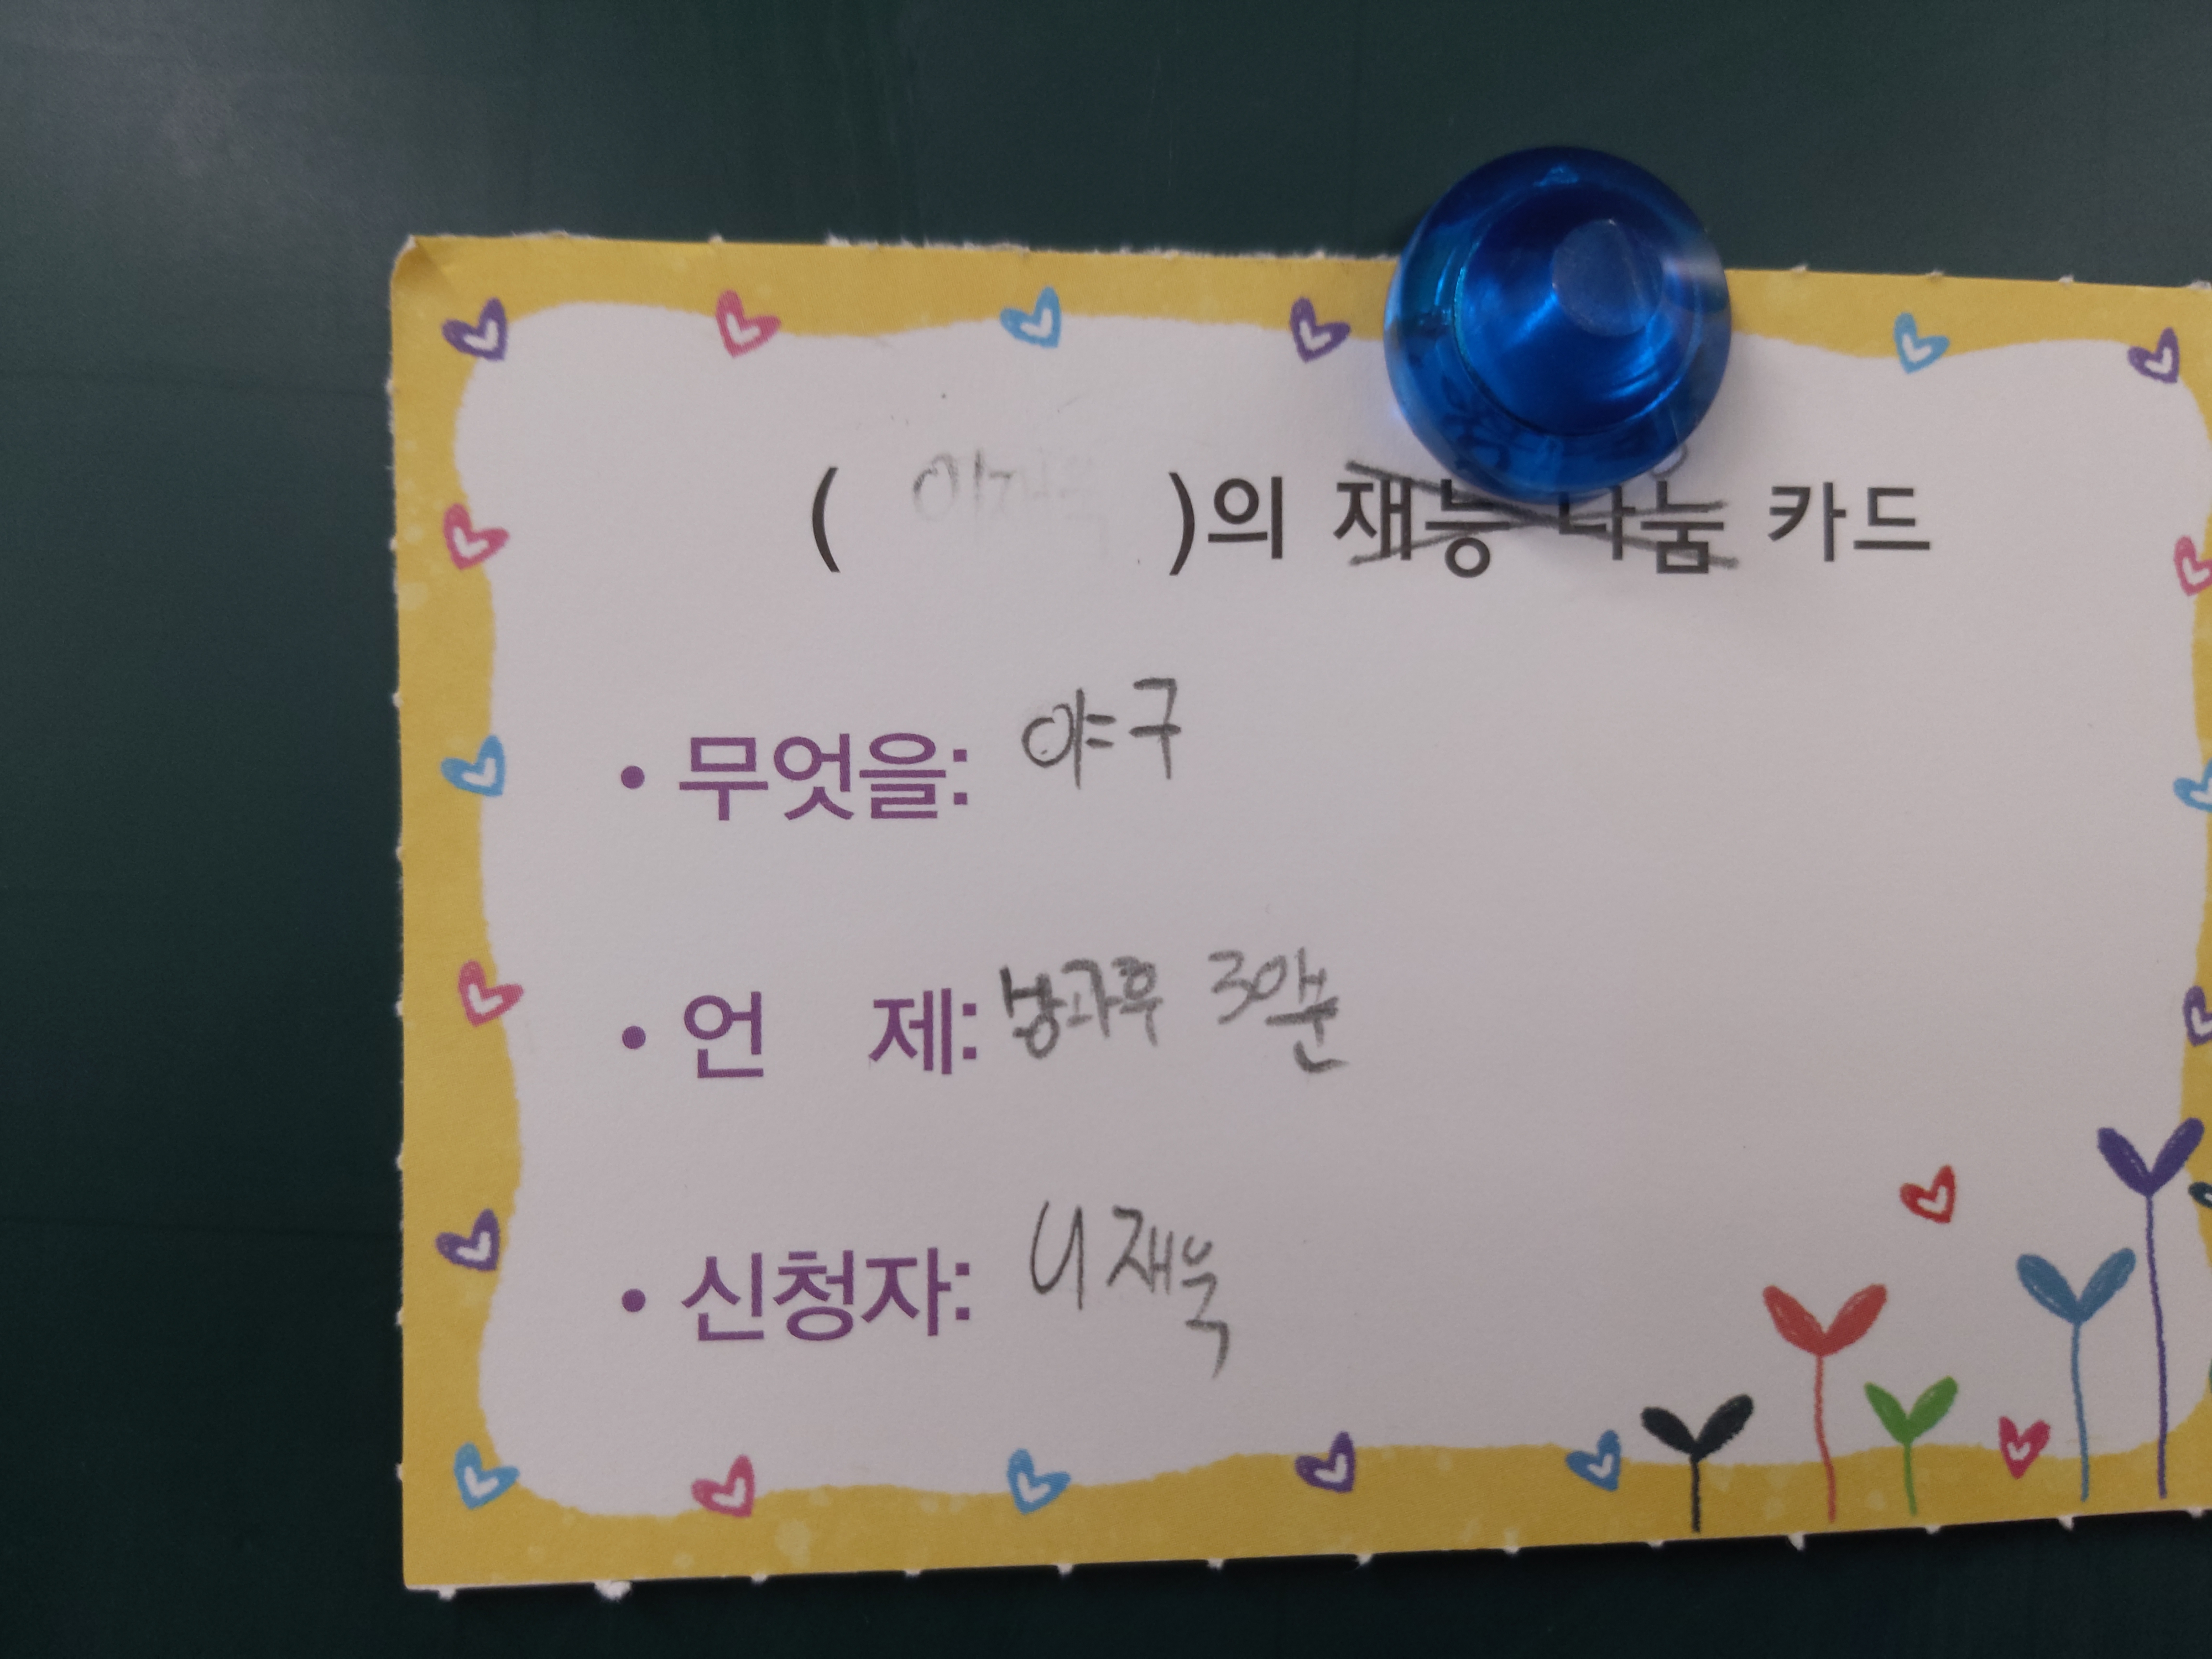 (이재욱)의 재능 나눔 카드
• 무엇을: 야구
• 언 제: 방과후 30분
• 신청자: 이재욱